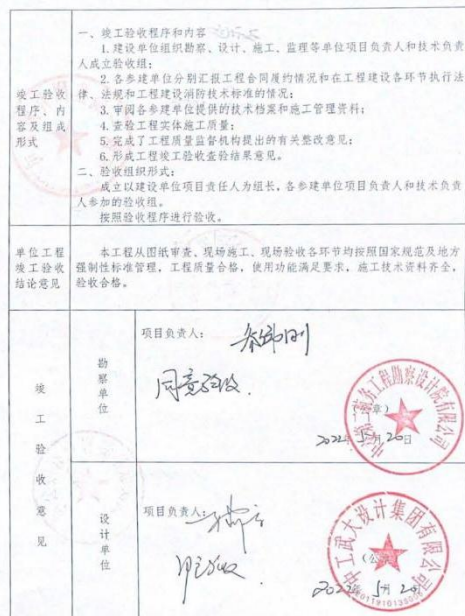 一、竣工验收程序和内容
1.建设单位组织勘察、设计、施工、监理等单位项目负责人和技术负责
人成立验收组;
2.各参建单位分别汇报工程合同履约情况和在工程建设各环节执行法
律、法规和工程建设消防技术标准的情况;
3.审阅各参建单位提供的技术档案和施工管理资料;
4.查验工程实体施工质量;
5.完成了工程质量监督机构提出的有关整改意见;
6.形成工程竣工验收查验结果意见。
二、验收组织形式:
成立以建设单位项目责任人为组长,各参建单位项目负责人和技术负责
人参加的验收组。
按照验收程序进行验收。
竣工验收
程序、内
容及组成
形式
单位工程
竣工验收
结论意见
本工程从图纸审查、现场施工、现场验收各环节均按照国家规范及地方
强制性标准管理,工程质量合格,使用功能满足要求,施工技术资料齐全,
验收合格。
竣工验收意见
勘察单位
项目负责人:
同意验收.
章)
2022年5月20日
设计单位
项目负责人:
同意验收
中工武大设计集团有限公司
(公章)
2022年5月20